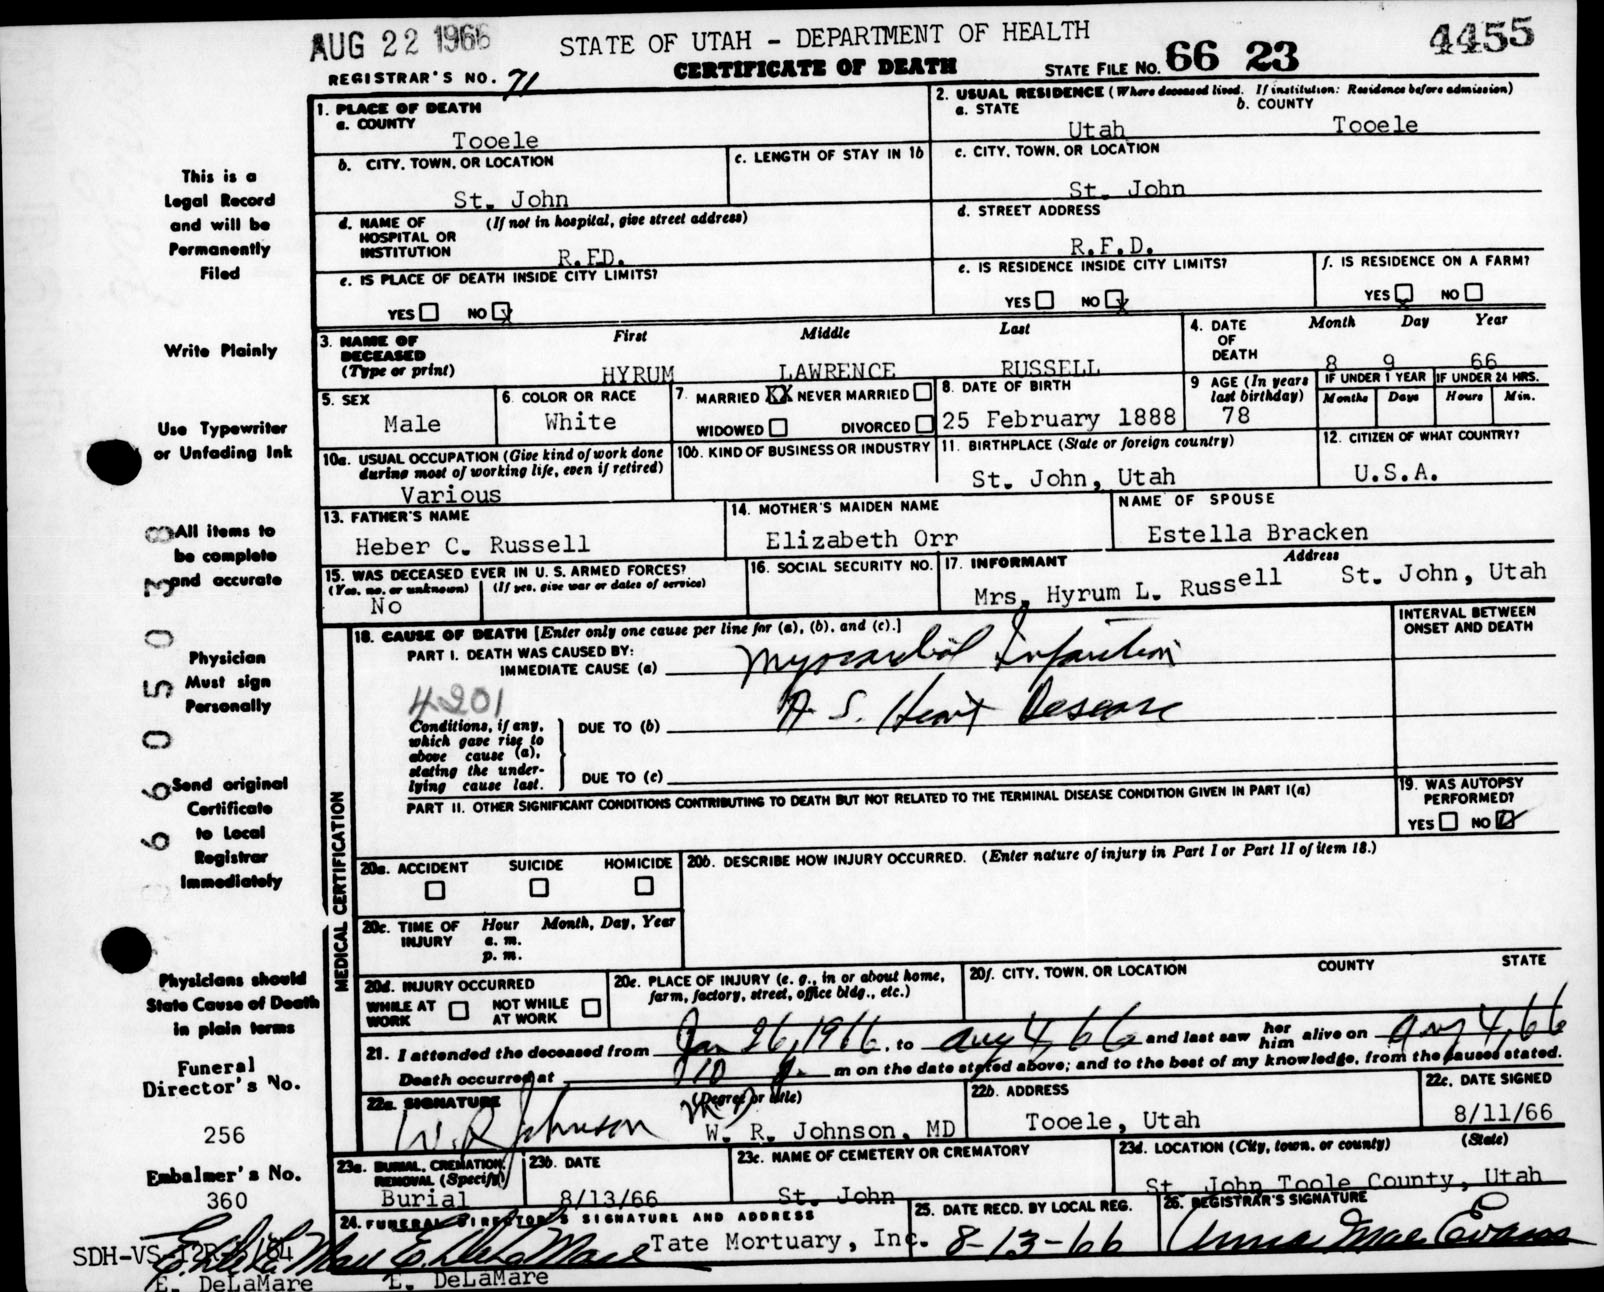 AUG 22 1966
STATE OF UTAH - DEPARTMENT OF HEALTH
4455
REGISTRAR'S NO. 71
CERTIFICATE OF DEATH
STATE FILE NO. 66 23
1. PLACE OF DEATH
a. COUNTY
Tooele
2. USUAL RESIDENCE (Where deceased lived. If institution: Residence before admission)
a. STATE
b. COUNTY
Utah
Tooele
b. CITY, TOWN, OR LOCATION
St. John
c. LENGTH OF STAY IN 1b
c. CITY, TOWN, OR LOCATION
St. John
d. NAME OF HOSPITAL OR INSTITUTION
(If not in hospital, give street address)
R.FD.
d. STREET ADDRESS
R.F.D.
e. IS PLACE OF DEATH INSIDE CITY LIMITS?
YES NO X
e. IS RESIDENCE INSIDE CITY LIMITS?
YES NO X
f. IS RESIDENCE ON A FARM?
YES X NO
3. NAME OF DECEASED
(Type or print)
First Middle Last
HYRUM LAWRENCE RUSSELL
4. DATE OF DEATH
Month Day Year
8 9 66
5. SEX
Male
6. COLOR OR RACE
White
7. MARRIED XX NEVER MARRIED
WIDOWED DIVORCED
8. DATE OF BIRTH
25 February 1888
9 AGE (In years last birthday)
78
IF UNDER 1 YEAR
Months Days
IF UNDER 24 HRS.
Hours Min.
10a. USUAL OCCUPATION (Give kind of work done
during most of working life, even if retired)
Various
10b. KIND OF BUSINESS OR INDUSTRY
11. BIRTHPLACE (State or foreign country)
St. John, Utah
12. CITIZEN OF WHAT COUNTRY?
U.S.A.
13. FATHER'S NAME
Heber C. Russell
14. MOTHER'S MAIDEN NAME
Elizabeth Orr
NAME OF SPOUSE
Estella Bracken
15. WAS DECEASED EVER IN U. S. ARMED FORCES?
(Yes, no, or unknown) (If yes, give war or dates of service)
No
16. SOCIAL SECURITY NO.
17. INFORMANT
Address
Mrs. Hyrum L. Russell St. John, Utah
MEDICAL CERTIFICATION
18. CAUSE OF DEATH [Enter only one cause per line for (a), (b), and (c).]
INTERVAL BETWEEN ONSET AND DEATH
PART I. DEATH WAS CAUSED BY:
IMMEDIATE CAUSE (a) Myocardial Infarction
4201
Conditions, if any,
which gave rise to
above cause (a),
stating the under-
lying cause last.
DUE TO (b) A. S. Heart Disease
DUE TO (c)
PART II. OTHER SIGNIFICANT CONDITIONS CONTRIBUTING TO DEATH BUT NOT RELATED TO THE TERMINAL DISEASE CONDITION GIVEN IN PART I(a)
19. WAS AUTOPSY PERFORMED?
YES NO
20a. ACCIDENT SUICIDE HOMICIDE
20b. DESCRIBE HOW INJURY OCCURRED. (Enter nature of injury in Part I or Part II of item 18.)
20c. TIME OF INJURY
Hour Month, Day, Year
a. m.
p. m.
20d. INJURY OCCURRED
WHILE AT WORK NOT WHILE AT WORK
20e. PLACE OF INJURY (e. g., in or about home,
farm, factory, street, office bldg., etc.)
20f. CITY, TOWN, OR LOCATION COUNTY STATE
21. I attended the deceased from Jan 26, 1966, to Aug 4, 66 and last saw her him alive on Aug 4, 66
Death occurred at 10 m on the date stated above; and to the best of my knowledge, from the causes stated.
22a. SIGNATURE
(Degree or title)
W. R. Johnson MD
W. R. Johnson, MD
22b. ADDRESS
Tooele, Utah
22c. DATE SIGNED
8/11/66
23a. BURIAL, CREMATION, REMOVAL (Specify)
Burial
23b. DATE
8/13/66
23c. NAME OF CEMETERY OR CREMATORY
St. John
23d. LOCATION (City, town, or county) (State)
St. John Toole County, Utah
24. FUNERAL DIRECTOR'S SIGNATURE AND ADDRESS
E. DeLaMare
Tate Mortuary, Inc.
E. DeLaMare
25. DATE RECD. BY LOCAL REG.
8-13-66
26. REGISTRAR'S SIGNATURE
Anna Mae Evans
This is a
Legal Record
and will be
Permanently
Filed
Write Plainly
Use Typewriter
or Unfading Ink
All items to
be complete
and accurate
Physician
Must sign
Personally
Send original
Certificate
to Local
Registrar
Immediately
Physicians should
State Cause of Death
in plain terms
Funeral
Director's No.
256
Embalmer's No.
360
SDH-VS
E. DeLaMare
E. DeLaMare
66050308